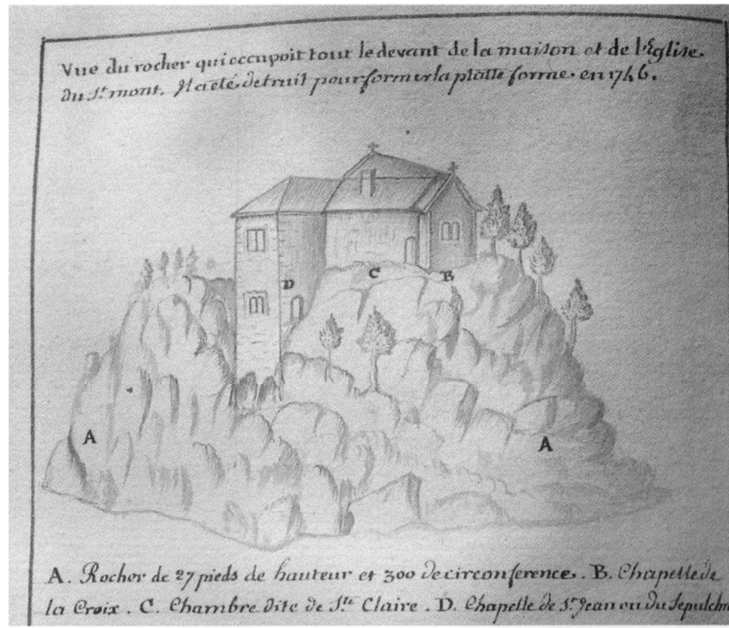 Vue du rocher qui occupoit tout le devant de la maison et de l'Eglise.
du St. mont. Il a eté detruit pour former la platte forme. en 1746.
D
C
B
A
A
A. Rocher de 27 pieds de hauteur et 300 de circonference. B. Chapelle de
la Croix. C. Chambre dite de Ste. Claire. D. Chapelle de St. Jean ou du Sepulchr